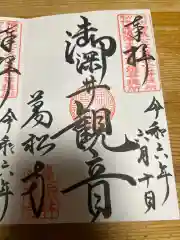 奉拝
令和六年
三月十日
御深井観音
萬松寺
奉拝
令和六年